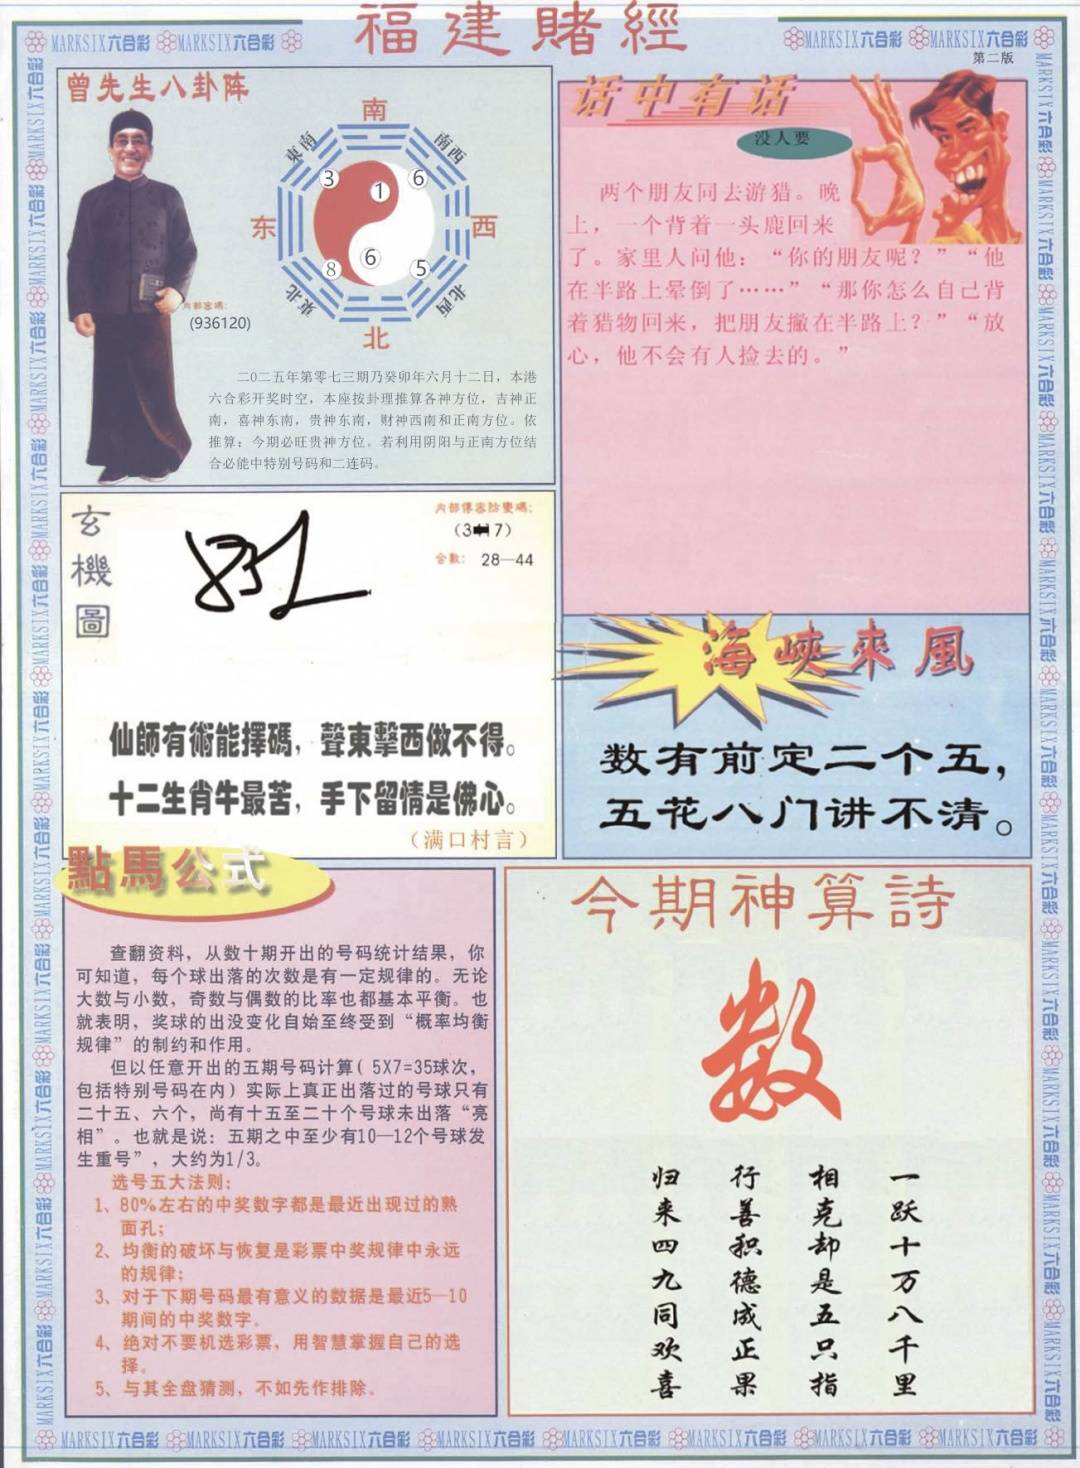 福建賭經
MARKSIX六合彩 MARKSIX六合彩
MARKSIX六合彩 MARKSIX六合彩
第二版
曾先生八卦阵
南
東南
南西
东
西
東北
北西
北
3
1
6
6
8
5
内部密碼:
(936120)
二〇二五年第零七三期乃癸卯年六月十二日，本港
六合彩开奖时空，本座按卦理推算各神方位，吉神正
南，喜神东南，贵神东南，财神西南和正南方位。依
推算；今期必旺贵神方位。若利用阴阳与正南方位结
合必能中特别号码和二连码。
话中有话
没人要
两个朋友同去游猎。晚
上，一个背着一头鹿回来
了。家里人问他：“你的朋友呢？”“他
在半路上晕倒了……”“那你怎么自己背
着猎物回来，把朋友撇在半路上？”“放
心，他不会有人捡去的。”
玄機圖
内部傳密防變碼:
合數: 28—44
仙師有術能擇碼，聲東擊西做不得。
十二生肖牛最苦，手下留情是佛心。
（满口村言）
海峽來風
数有前定二个五，
五花八门讲不清。
點馬公式
查翻资料，从数十期开出的号码统计结果，你
可知道，每个球出落的次数是有一定规律的。无论
大数与小数，奇数与偶数的比率也都基本平衡。也
就表明，奖球的出没变化自始至终受到“概率均衡
规律”的制约和作用。
但以任意开出的五期号码计算( 5X7=35球次，
包括特别号码在内) 实际上真正出落过的号球只有
二十五、六个，尚有十五至二十个号球未出落“亮
相”。也就是说：五期之中至少有10—12个号球发
生重号”，大约为1/3。
选号五大法则：
1、80%左右的中奖数字都是最近出现过的熟
面孔；
2、均衡的破坏与恢复是彩票中奖规律中永远
的规律；
3、对于下期号码最有意义的数据是最近5—10
期间的中奖数字。
4、绝对不要机选彩票，用智慧掌握自己的选
择。
5、与其全盘猜测，不如先作排除。
今期神算詩
数
一跃十万八千里
相克却是五只指
行善积德成正果
归来四九同欢喜
MARKSIX六合彩 MARKSIX六合彩 MARKSIX六合彩 MARKSIX六合彩 MARKSIX六合彩 MARKSIX六合彩 MARKSIX六合彩 MARKSIX六合彩